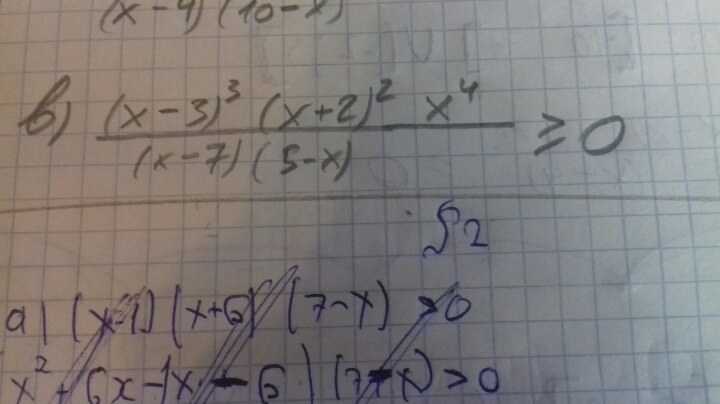 (x-4)(10-x)
в) (x-3)³ (x+2)² x⁴ / (x-7)(5-x) ≥ 0
а) (x-1)(x+6)(7-x) > 0
x² + 6x - 1x - 6)(7-x) > 0